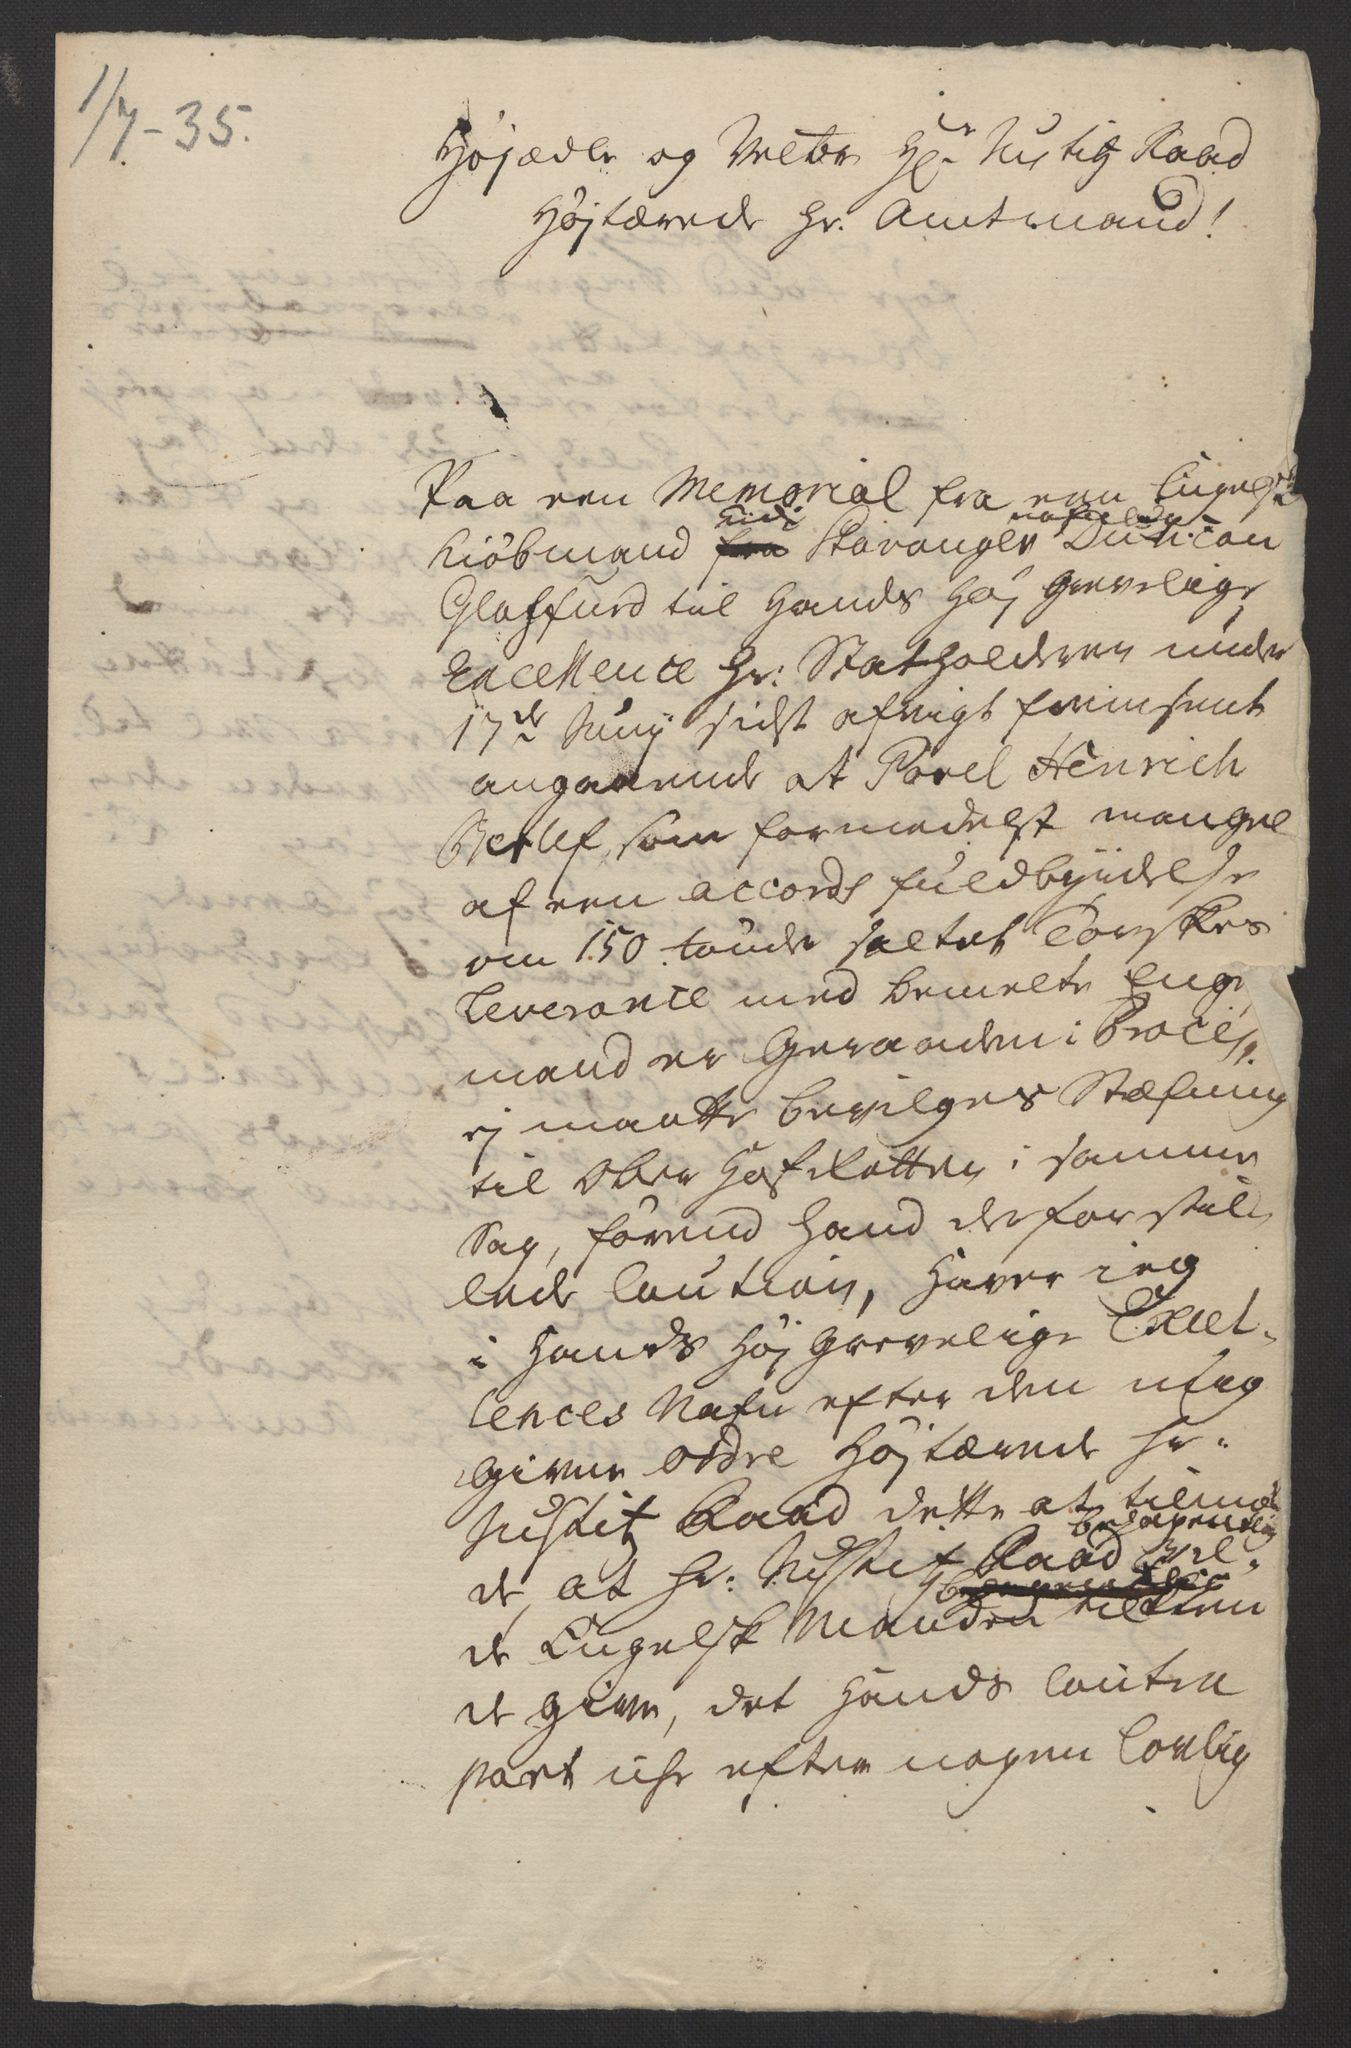 1/7-35.
Højædle og Velbr Hr Justitz Raad
Højtærede Hr. Amtmand!
Paa een Memorial fra een Engelsk
Kiøbmand udi Stavanger nafnl. Duncan
Glassfurd til Hands Høj Grevelige
Excellence Hr: Statholderen under
17de Junij sidst afvigt fremsent
angaaende at Povel Henrich
Detlef, som formedelst mangel
af een accords fuldbyrdelse
om 150 tønder saltet Torskes
Leverance med bemelte Engel
mand er Geraaden i Process,
ej maatte bevilges Stæfning
til Ober Hof Retten i samme
Sag, førend hand derfor stil
lede Caution, Haver ieg
i Hands Høj Grevelige Excel-
lences Nafn efter den mig
givne ordre Højtærede Hr.
Justitz Raad dette at tilmel
de, at Hr: Justitz Raad behagentlig vil-
de Engelsk Manden tilkien
de give, det Hands Contra
part icke efter nogen Lovlig